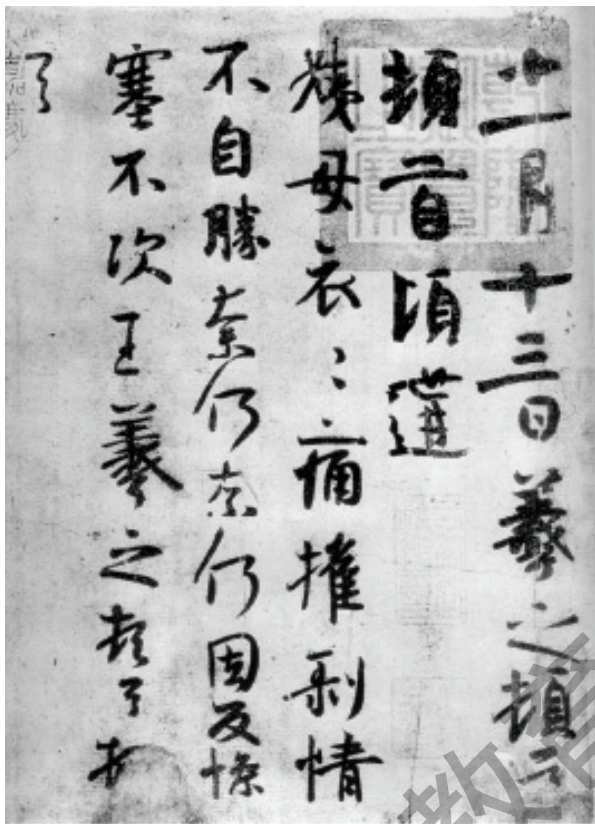 十一月十三日羲之頓首
頓首頃遘
姨母哀〻痛摧剝情
不自勝奈何奈何因反慘
塞不次王羲之頓首頓
首
乾隆御覽之寶